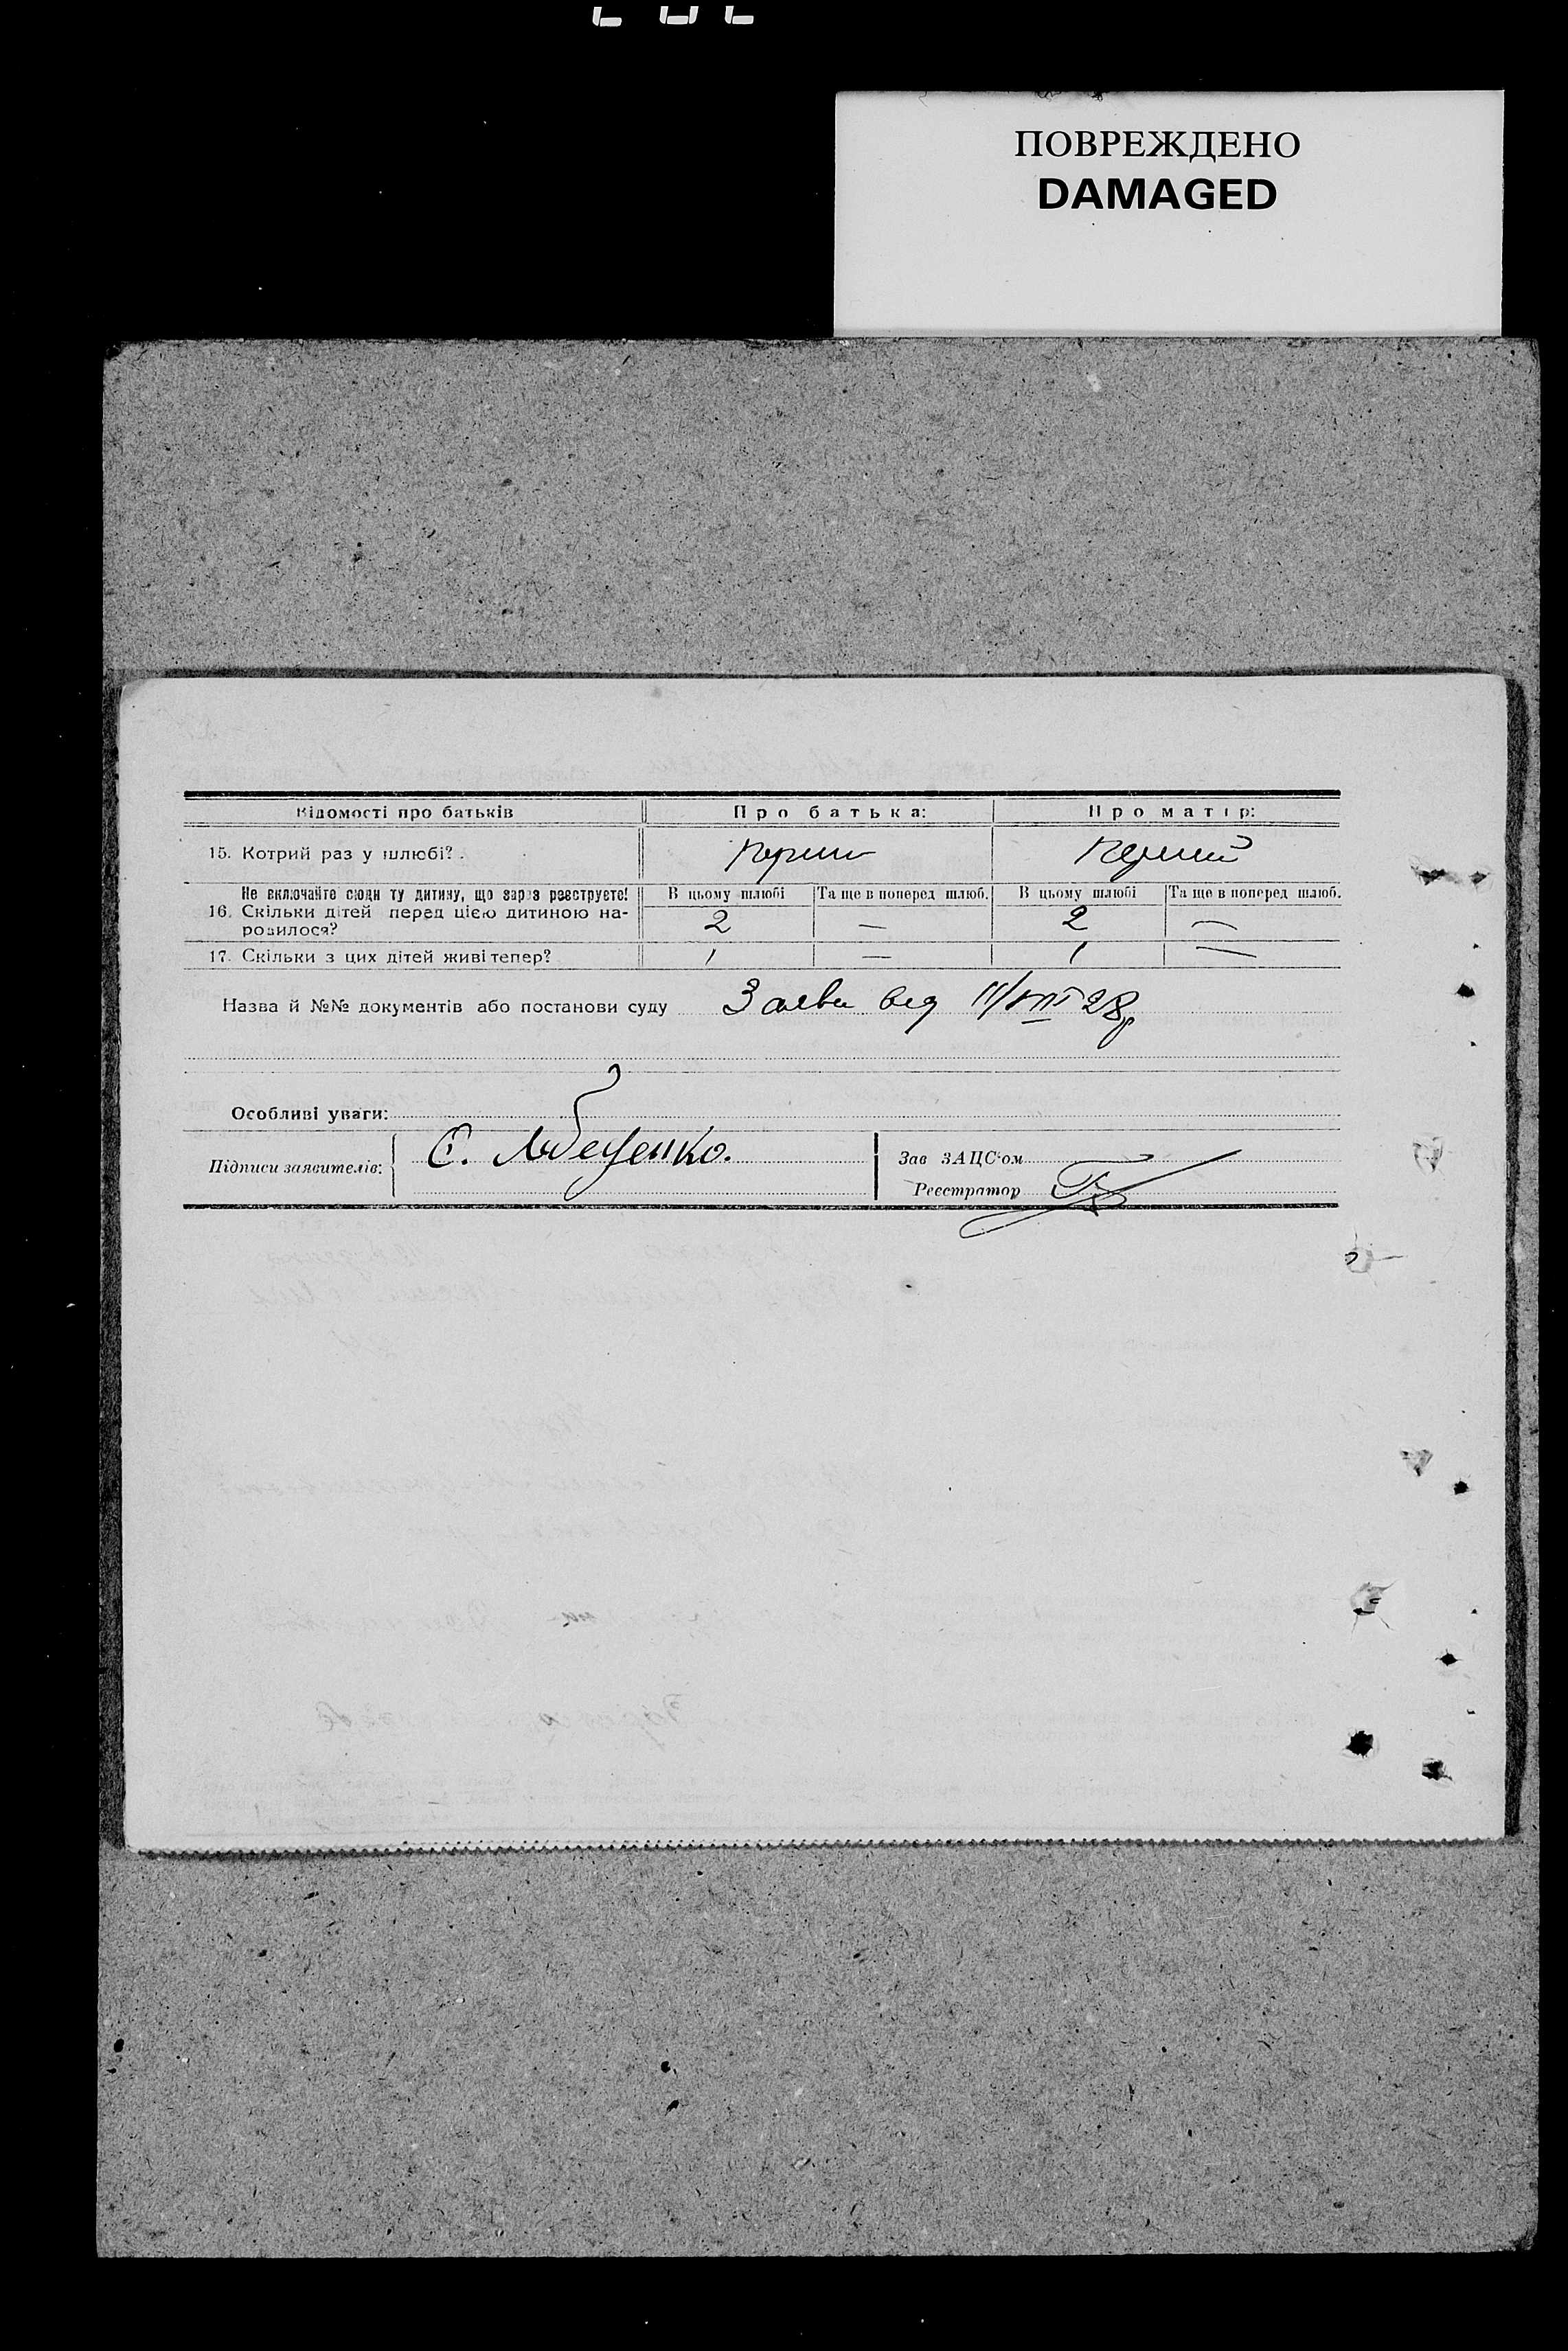 ПОВРЕЖДЕНО
DAMAGED
Відомості про батьків Про батька: Про матір:
15. Котрий раз у шлюбі? перший перший
Не включайте сюди ту дитину, що зараз реєструєте! В цьому шлюбі Та ще в поперед шлюб. В цьому шлюбі Та ще в поперед шлюб.
16. Скільки дітей перед цією дитиною на-
родилося? 2 — 2 —
17. Скільки з цих дітей живі тепер? 1 — 1 —
Назва й №№ документів або постанови суду Заява від 11/VIII 28р
Особливі уваги:
Підписи заявителів: Є.
Зав ЗАЦС'ом
Реєстратор